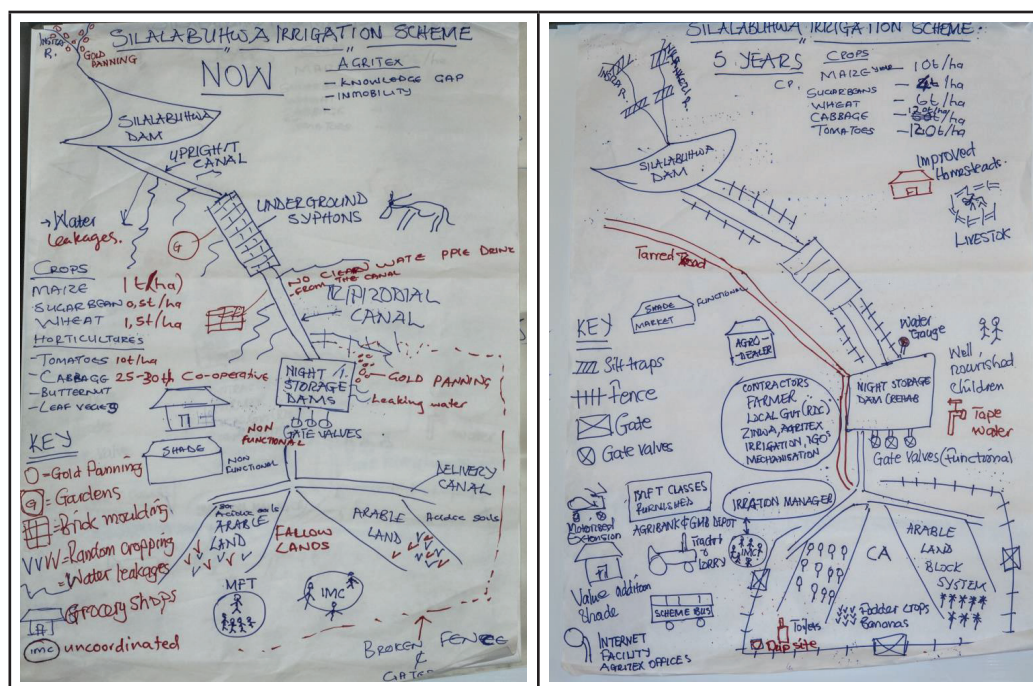 SILALABUHWA IRRIGATION SCHEME
NOW
INSIZA
R.
GOLD
PANNING
AGRITEX
- KNOWLEDGE GAP
- INMOBILITY
-
SILALABUHWA
DAM
UPRIGHT
CANAL
→ Water
leakages.
G
UNDERGROUND
SYPHONS
NO CLEAN WATE PPLE DRINK
-FROM THE CANAL
CANAL
CROPS
MAIZE 1t/(ha)
SUGARBEAN 0,5t/ha
WHEAT 1,5t/ha
HORTICULTURES
- TOMATOES 10t/ha
- CABBAGE 25-30th
- BUTTERNUT
- LEAF VEGES
Co-operative
NIGHT
STORAGE
DAMS
GOLD PANNING
Leaking water
NON
FUNCTIONAL
GATE VALVES
SHADE
NON
FUNCTIONAL
DELIVERY
CANAL
KEY
O=Gold Panning
G = Gardens
=Brick moulding
VVV=Random cropping
=Water leakages
Grocery shops
IMC uncoordinated
Acidic soils
ARABLE
LAND
FALLOW
LANDS
ARABLE
LAND
Acidic soils
MFT
IMC
BROKEN FENCE
&
GATES
SILALABUHWA IRRIGATION SCHEME
5 YEARS
INSIZA R.
CP.
CROPS
MAIZE - 10t/ha
SUGARBEANS - 4t/ha
WHEAT - 6t/ha
CABBAGE - 120t/ha
TOMATOES - 120t/ha
SILALABUHWA
DAM
Improved
Homesteads
LIVESTOK
Tarred Road
SHADE
MARKET
FUNCTIONAL
AGRO-
DEALER
Water
Gauge
Well
nourished
children
Tape
water
KEY
Silt-traps
Fence
Gate
Gate valves
CONTRACTORS
FARMER
LOCAL GVT (RDC)
ZINWA, AGRITEX
IRRIGATION, NGOS
MECHANISATION
NIGHT STORAGE
DAM (REHAB
Gate valves (functional
MFT CLASSES
FURNISHED
IRRATION MANAGER
Motorised
Extension
AGRIBANK & GMB DEPOT
Tractor
&
LORRY
IMC
Value addition
shade
SCHEME BUS
INTERNET
FACILITY
AGRITEX OFFICES
CA
ARABLE
LAND
BLOCK
SYSTEM
Fodder crops
Bananas
Toilets
Dop site